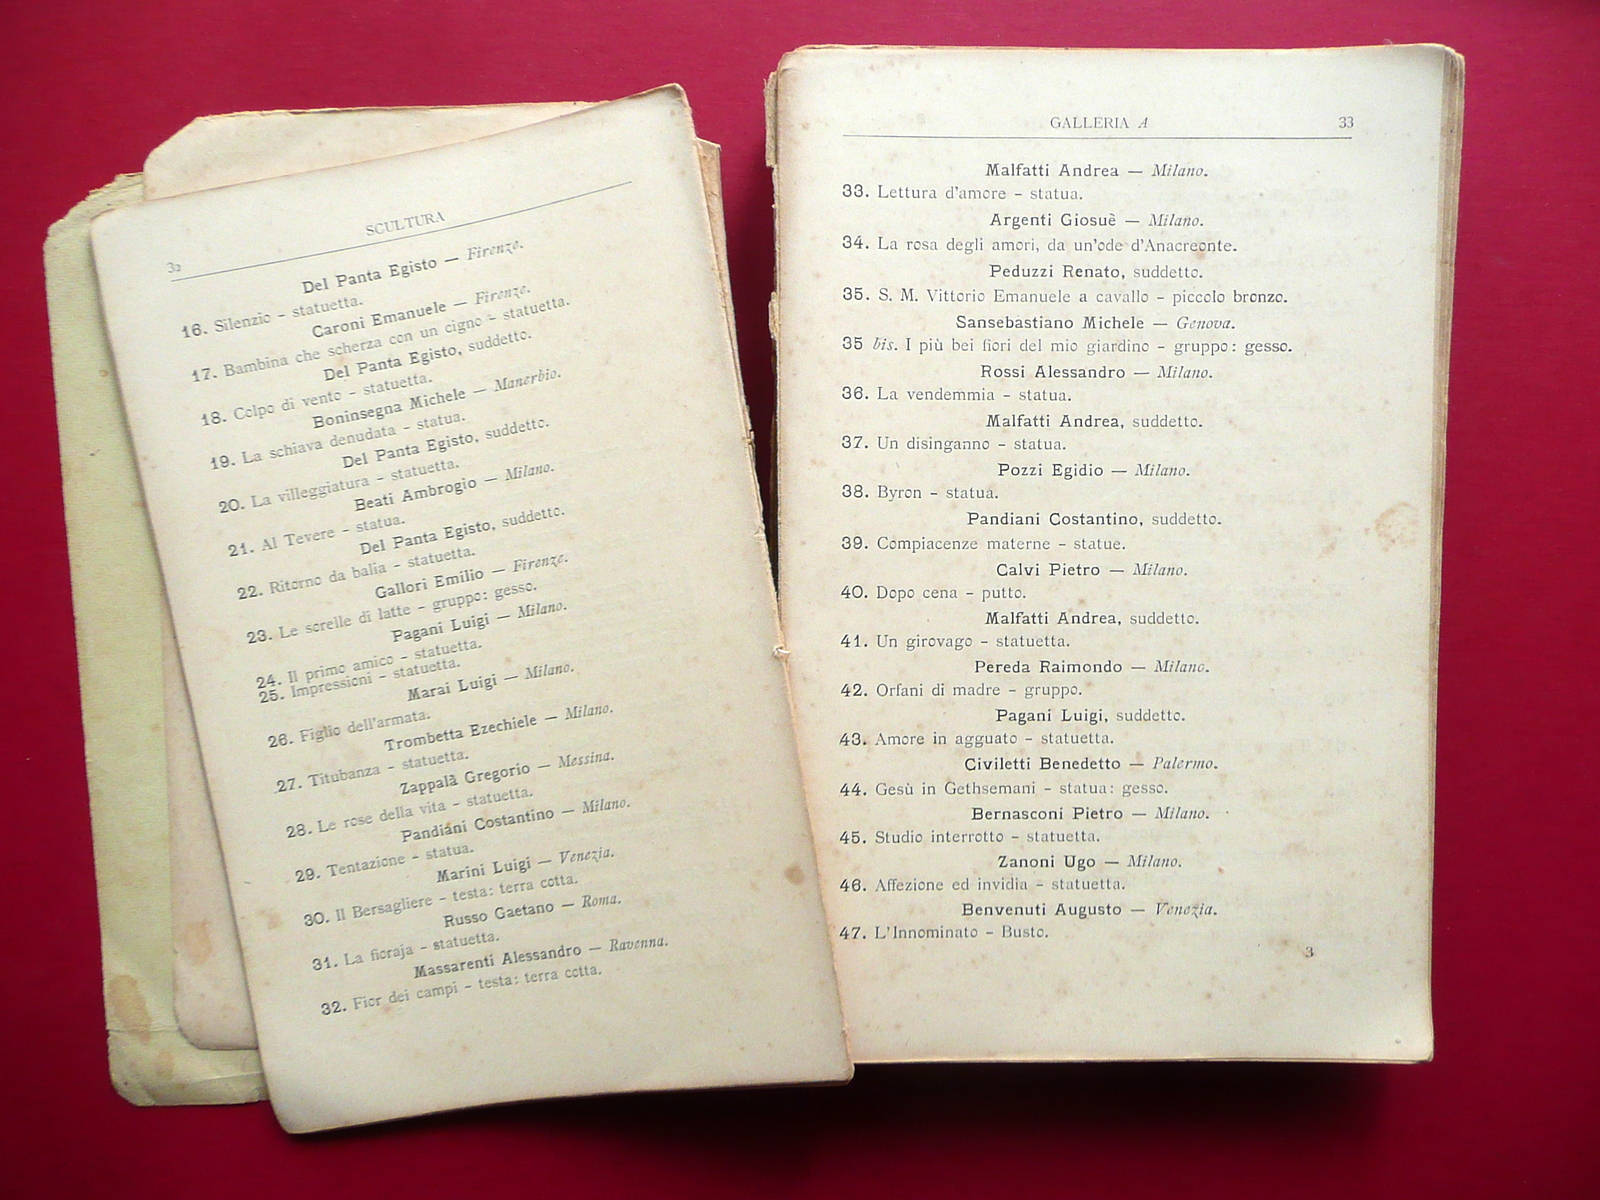 32
SCULTURA
Del Panta Egisto — Firenze.
16. Silenzio - statuetta.
Caroni Emanuele — Firenze.
17. Bambina che scherza con un cigno - statuetta.
Del Panta Egisto, suddetto.
18. Colpo di vento - statuetta.
Boninsegna Michele — Manerbio.
19. La schiava denudata - statua.
Del Panta Egisto, suddetto.
20. La villeggiatura - statuetta.
Beati Ambrogio — Milano.
21. Al Tevere - statua.
Del Panta Egisto, suddetto.
22. Ritorno da balia - statuetta.
Gallori Emilio — Firenze.
23. Le sorelle di latte - gruppo: gesso.
Pagani Luigi — Milano.
24. Il primo amico - statuetta.
25. Impressioni - statuetta.
Marai Luigi — Milano.
26. Figlio dell'armata.
Trombetta Ezechiele — Milano.
27. Titubanza - statuetta.
Zappalà Gregorio — Messina.
28. Le rose della vita - statuetta.
Pandiani Costantino — Milano.
29. Tentazione - statua.
Marini Luigi — Venezia.
30. Il Bersagliere - testa: terra cotta.
Russo Gaetano — Roma.
31. La fioraja - statuetta.
Massarenti Alessandro — Ravenna.
32. Fior dei campi - testa: terra cotta.
GALLERIA A 33
Malfatti Andrea — Milano.
33. Lettura d'amore - statua.
Argenti Giosuè — Milano.
34. La rosa degli amori, da un'ode d'Anacreonte.
Peduzzi Renato, suddetto.
35. S. M. Vittorio Emanuele a cavallo - piccolo bronzo.
Sansebastiano Michele — Genova.
35 bis. I più bei fiori del mio giardino - gruppo: gesso.
Rossi Alessandro — Milano.
36. La vendemmia - statua.
Malfatti Andrea, suddetto.
37. Un disinganno - statua.
Pozzi Egidio — Milano.
38. Byron - statua.
Pandiani Costantino, suddetto.
39. Compiacenze materne - statue.
Calvi Pietro — Milano.
40. Dopo cena - putto.
Malfatti Andrea, suddetto.
41. Un girovago - statuetta.
Pereda Raimondo — Milano.
42. Orfani di madre - gruppo.
Pagani Luigi, suddetto.
43. Amore in agguato - statuetta.
Civiletti Benedetto — Palermo.
44. Gesù in Gethsemani - statua: gesso.
Bernasconi Pietro — Milano.
45. Studio interrotto - statuetta.
Zanoni Ugo — Milano.
46. Affezione ed invidia - statuetta.
Benvenuti Augusto — Venezia.
47. L'Innominato - Busto.
3